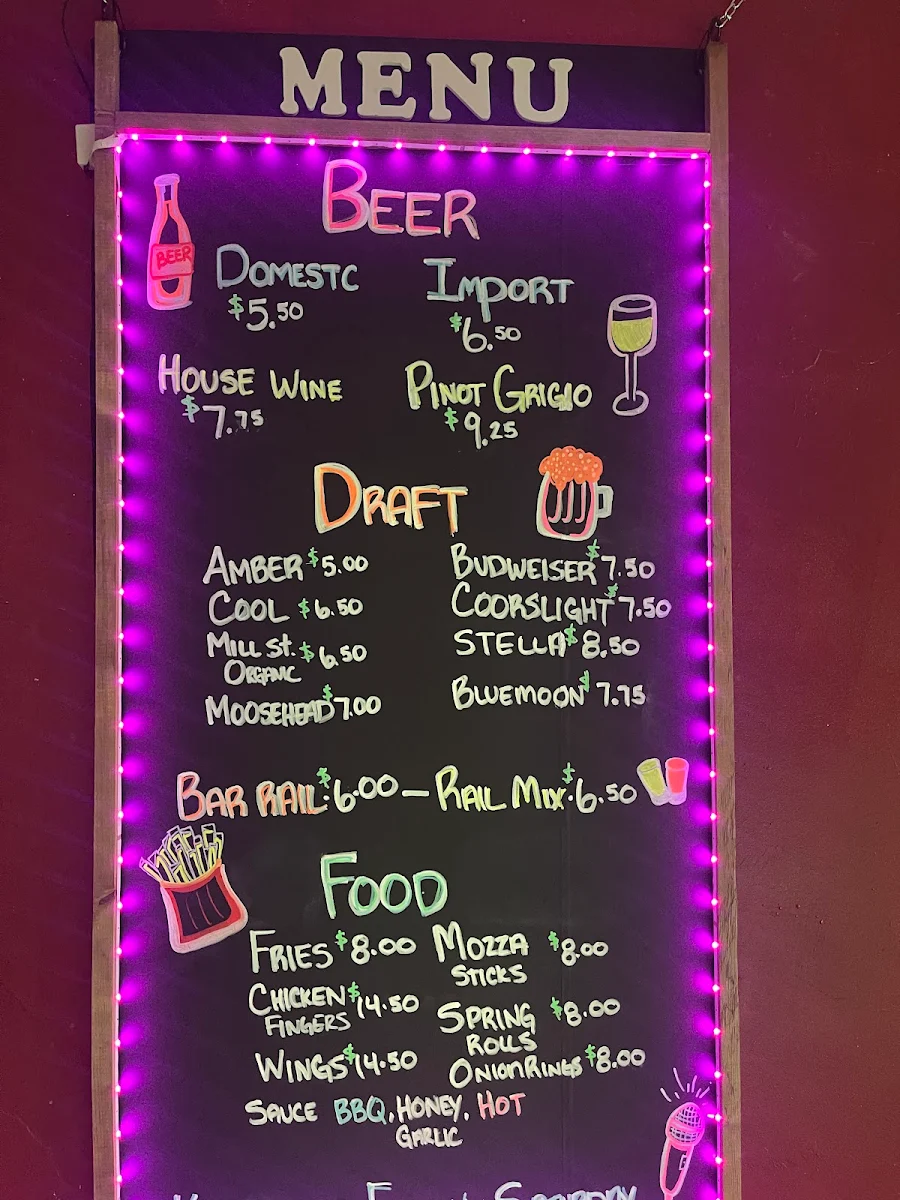 MENU
BEER
BEER
DOMESTC IMPORT
$5.50 $6.50
HOUSE WINE PINOT GRIGIO
$7.75 $9.25
DRAFT
AMBER $5.00 BUDWEISER $7.50
COOL $6.50 COORSLIGHT $7.50
MILL ST. $6.50 STELLA $8.50
ORGANIC
MOOSEHEAD $7.00 BLUEMOON $7.75
BAR RAIL. $6.00 – RAIL MIX. $6.50
FOOD
FRIES $8.00 MOZZA $8.00
STICKS
CHICKEN $14.50 SPRING $8.00
FINGERS ROLLS
WINGS $14.50 ONION RINGS $8.00
SAUCE BBQ, HONEY, HOT
GARLIC